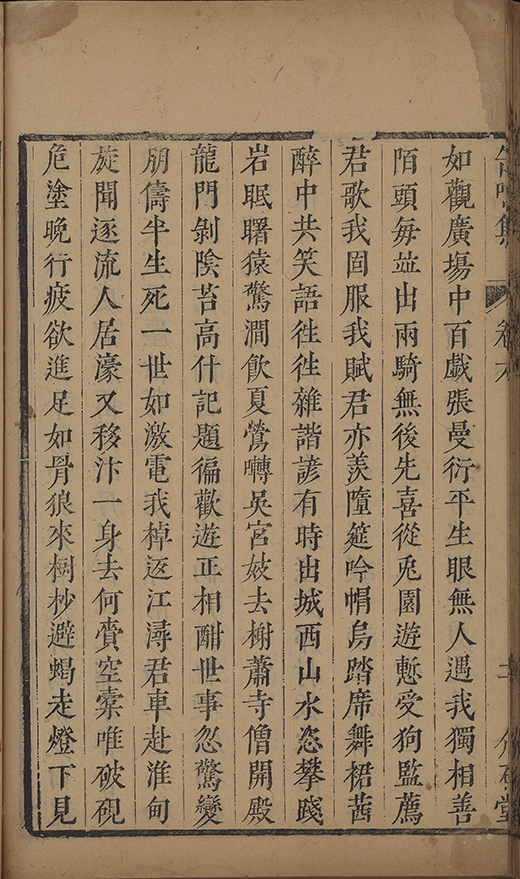 如觀廣場中百戲張曼衍平生眼無人遇我獨相善
陌頭每並出兩騎無後先喜從兎園遊慙受狗監薦
君歌我固服我賦君亦羨墮筵吟帽烏踏席舞裙茜
醉中共笑語徃徃雜諧諺有時出城西山水恣攀踐
岩眠曙猿驚澗飲夏鶯囀吳宮妓去榭蕭寺僧開殿
龍門剝陰苔高什記題徧歡遊正相酣世事忽驚變
朋儔半生死一世如激電我棹返江潯君車赴淮甸
旋聞逐流人居濠又移汴一身去何賫空橐唯破硯
危塗晚行疲欲進足如骨狼來樹杪避蝎走燈下見